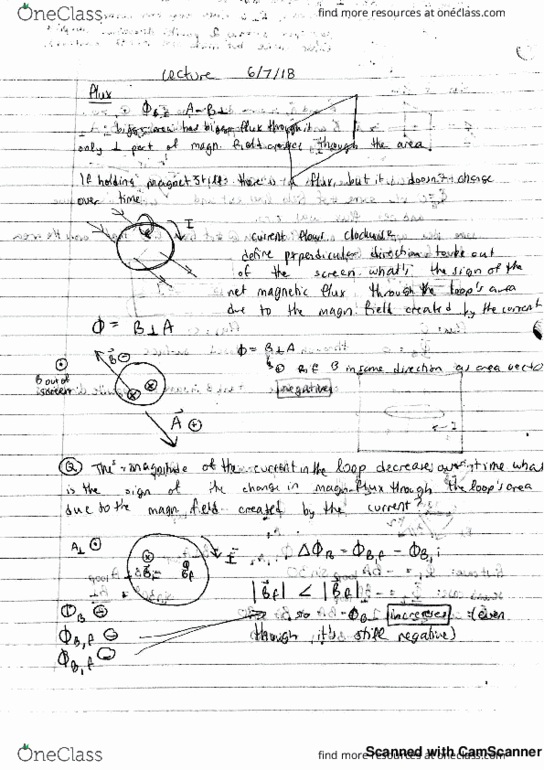 OneClass
find more resources at oneclass.com
Lecture 6/7/18
Flux
Φ_B = A·B⊥
bigger area has bigger flux through it
only ⊥ part of magn. field crosses through the area
If holding magnet still there is flux, but it doesn't change
over time
I
current flows clockwise
define perpendicular direction to be out
of the screen. what's the sign of the
net magnetic flux through the loop's area
due to the magn. field created by the current
Φ = B⊥A
Φ = B⊥A
B out of
screen
if B in same direction as area vector
negative
A ⊕
Q The magnitude of the current in the loop decreases over time what
is the sign of the change in magn. flux through the loop's area
due to the magn. field created by the current?
A⊥ ⊙
I
ΔΦ_B = Φ_B,f − Φ_B,i
|B_f| <
Φ_B ⊖
Φ_B,f ⊖
Φ_B,f ⊖
so Φ_B increases (even
though it's still negative)
OneClass
find more resources at oneclass.com
Scanned with CamScanner